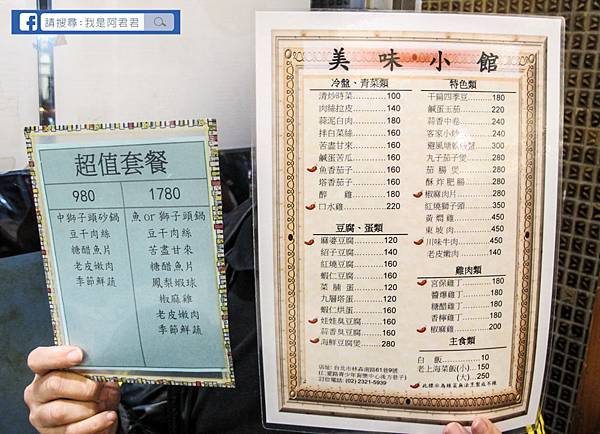 請搜尋:我是阿君君
超值套餐
980
中獅子頭砂鍋
豆干肉絲
糖醋魚片
老皮嫩肉
季節鮮蔬
1780
魚or獅子頭鍋
豆干肉絲
苦盡甘來
糖醋魚片
鳳梨蝦球
椒麻雞
老皮嫩肉
季節鮮蔬
美味小館
冷盤、青菜類
清炒時菜 100
肉絲拉皮 140
蒜泥白肉 180
拌白菜絲 160
苦盡甘來 160
鹹蛋苦瓜 160
魚香茄子 160
塔香茄子 160
醉雞 180
口水雞 220
豆腐、蛋類
麻婆豆腐 120
紹子豆腐 140
紅燒豆腐 160
蝦仁豆腐 160
菜脯蛋 120
九層塔蛋 120
蝦仁烘蛋 160
娃娃臭豆腐 160
蒜香臭豆腐 160
海鮮豆腐煲 280
店址:台北市林森南路61巷9號
(仁愛路青少年育樂中心後方巷子)
訂位電話:(02) 2321-5939
特色類
干扁四季豆 180
鹹蛋玉茄 220
蒜香中卷 240
客家小炒
避風塘軟殼蟹 300
丸子茄子煲 180
茄腸煲 280
酥炸肥腸 280
椒麻肉片 210
紅燒獅子頭 350
黃燜雞 450
東坡肉 450
川味牛肉 450
老皮嫩肉 140
雞肉類
宮保雞丁 180
醬爆雞丁 180
糖醋雞丁 180
香檸雞丁 180
椒麻雞 200
主食類
白飯 10
老上海菜飯(小) 150
(大) 250